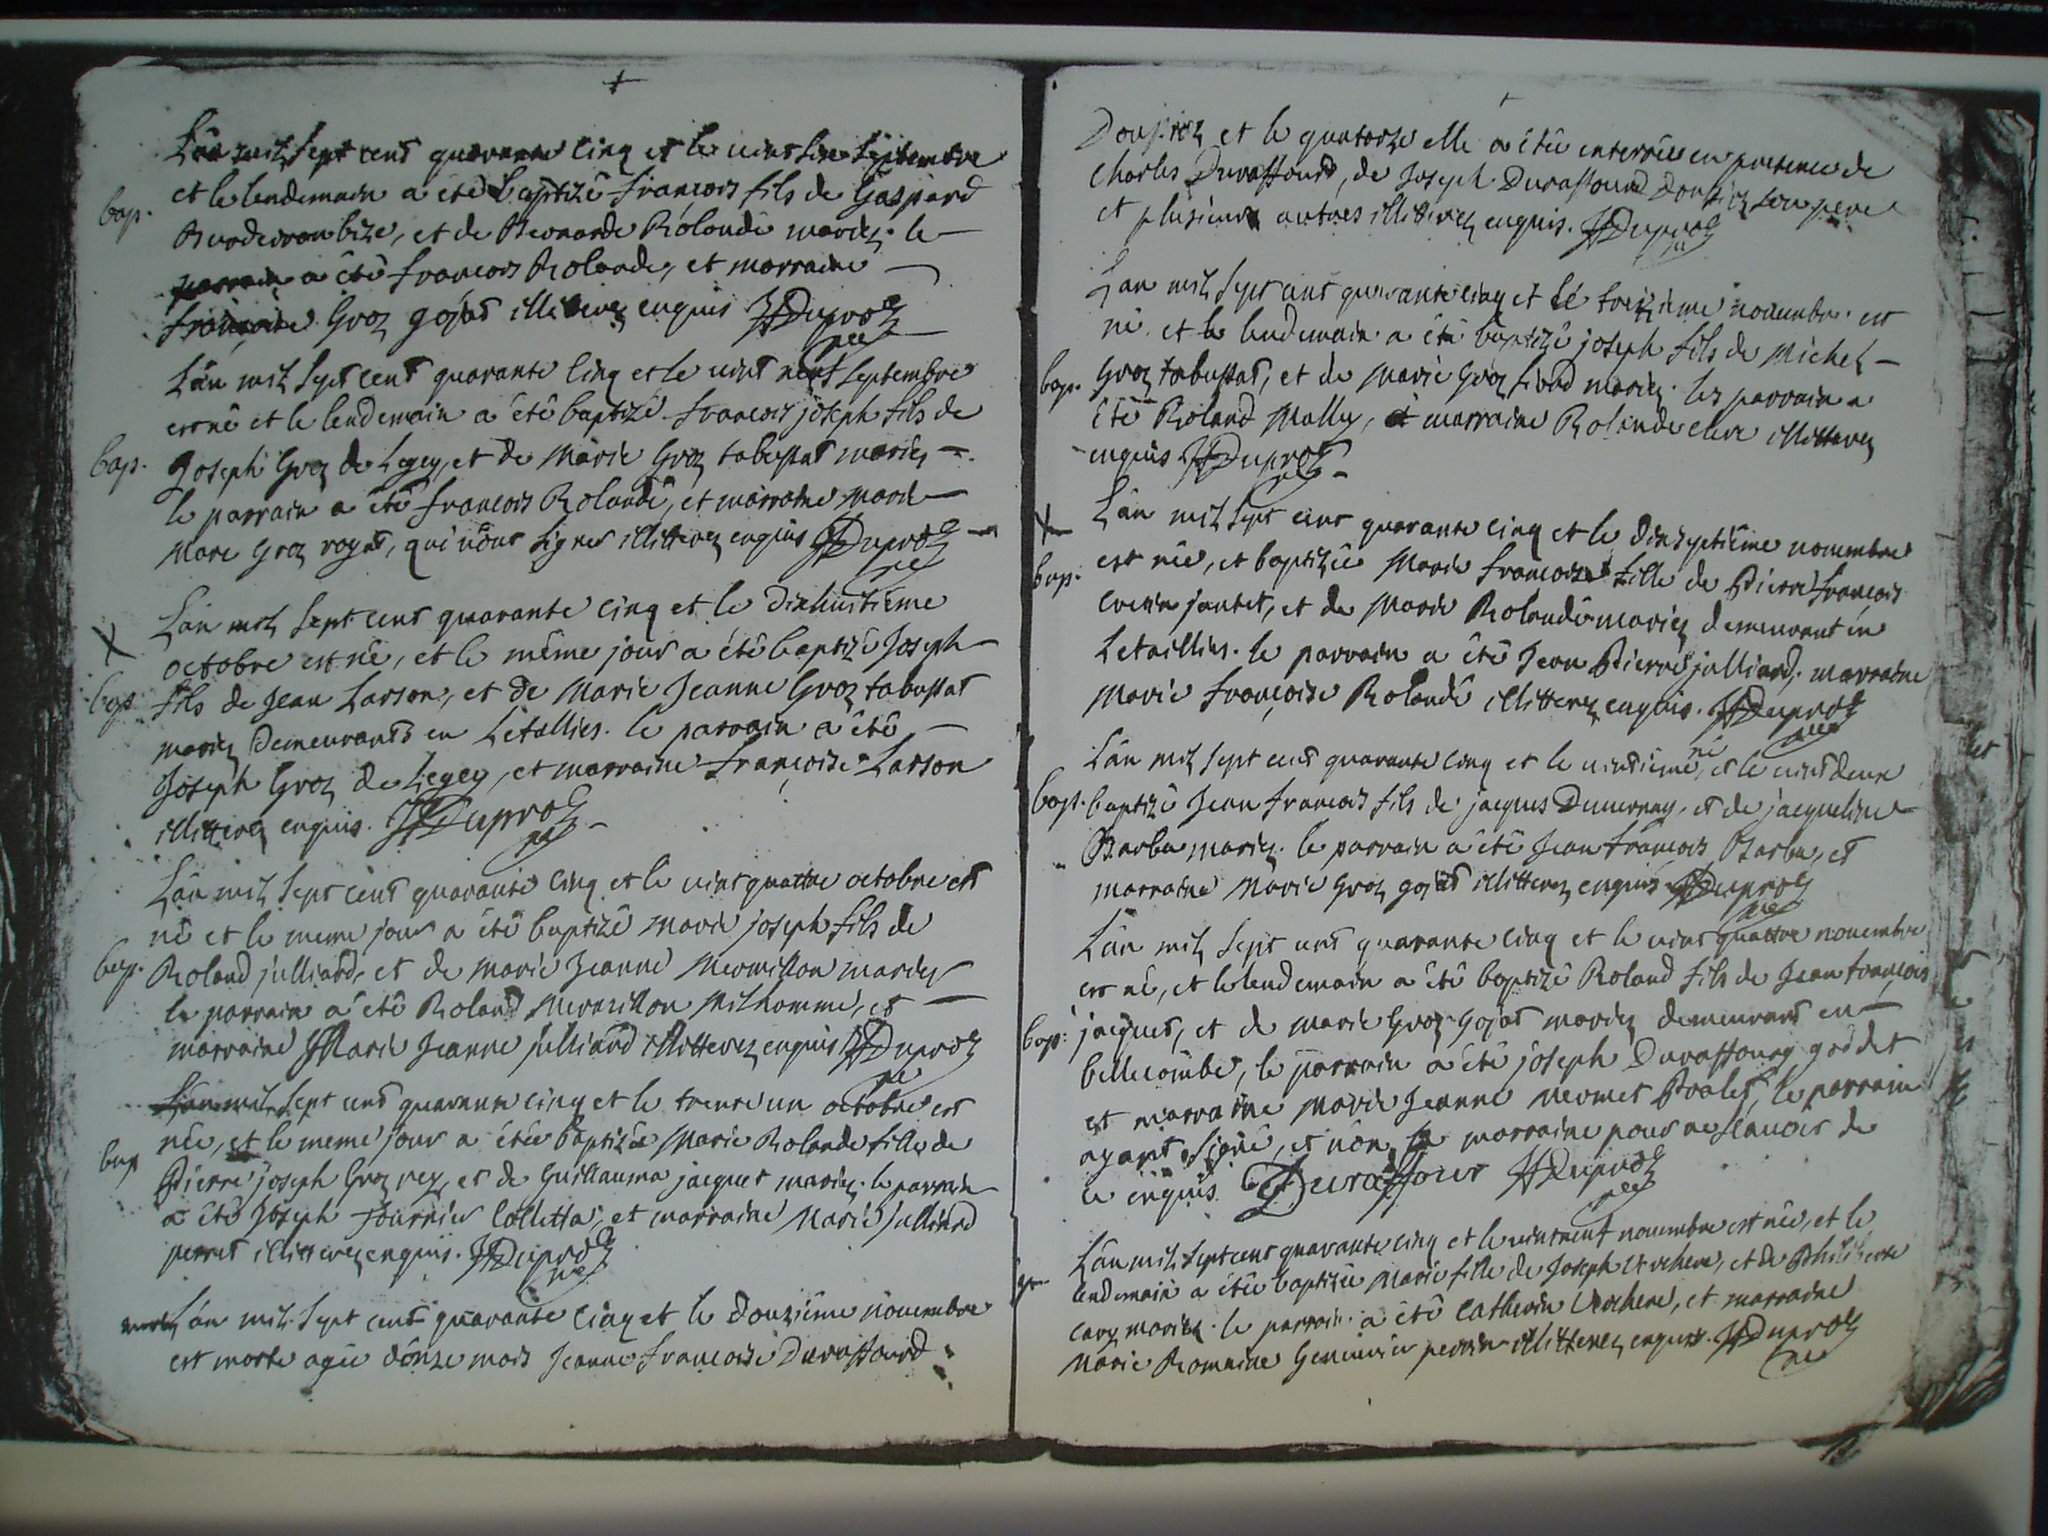 Lân mil sept cent quarante cinq et le vint six septembre
bap. et le lendemain a été baptizé françois fils de Gaspard
et de Bernarde Rolandé mariez. le
parrain a été françois Rolande, et marraine
françoise Groz gojat illitterez enquis JFDuproz
Lân mil sept cent quarante cinq et le vint neuf septembre
est né et le lendemain a été baptizé françois joseph fils de
bap. Joseph Groz de Legey, et de Marie Groz tabussat mariez
le parrain a été françois Rolandé, et marraine marie
Mare Groz royat, qui n'ont signer illitterez enquis JFDuproz
Lân mil sept cent quarante cinq et le dixhuitième
octobre est né, et le même jour a été baptizé Joseph
bap. fils de Jean Larson, et de Marie Jeanne Groz tabussat
mariez demeurants en Létallies. le parrain a été
Joseph Groz de Legey, et marraine françoise Larson
illitterez enquis. JFDuproz
Lân mil sept cent quarante cinq et le vint quattre octobre est
né et le meme jour a été baptizé marie joseph fils de
bap. Roland julliard, et de marie Jeanne Mermillon mariez
le parrain a été Roland Mermillon Milhomme, et
marraine Marie Jeanne julliard illitterez enquis JFDuproz
Lân mil sept cent quarante cinq et le trente un octobre est
née, et le meme jour a étée baptizée Marie Rolande fille de
bap Pierre joseph Groz rey, et de Guillauma jacquet mariez. le parrain
a été Joseph fournier Colletta, et marraine Marie Julliard
perret illitterez enquis. JFDuproz
mort Lân mil sept cent quarante cinq et le douzième novembre
est morte agée dônze mois Jeanne françoise Duraffourd
Doupiez et le quatorze elle a étée enterrée en presence de
Charles Duraffourd, de Joseph Duraffourd Doupiez son pere
et plusieurs autres illitterez enquis. JFDuproz
Lan mil sept cent quarante cinq et le treizieme novembre est
né et le lendemain a été baptizé joseph fils de Michel
bap. Groz tabussat, et de Marie Groz mariez. les parrain a
été Roland Mally, et marraine Rolande illitterez
enquis JFDuproz
Lân mil sept cent quarante cinq et le dixseptième novembre
bap. est née, et baptizée Marie françoise fille de Pierre françois
jantet, et de Marie Rolandé mariez demeurant en
Letaillies. le parrain a été Jean Pierre julliard, marraine
Marie françoise Rolandé illitterez enquis. JFDuproz
Lân mil sept cent quarante cinq et le vintième né, et le vint deux
bap. baptizé Jean françois fils de jacques Duvernay, et de jacqueline
Barbu mariez. le parrain a été Jean françois Barbu, et
marraine Marie Groz gojat illitterez enquis JFDuproz
Lân mil sept cent quarante cinq et le vint quattre novembre
est né, et le lendemain a été baptizé Roland fils de Jean françois
bap. jacquet, et de marie Groz gojat mariez demeurant en
bellecombe, le parrain a été joseph Duraffourg godet
et marraine Marie Jeanne vermet le parrain
ayant signé, et non la marraine pour ne sçavoir de
ce enquis Duraffour JFDuproz
Lân mil sept cent quarante cinq et le vint neuf novembre est née, et le
lendemain a étée baptizée Marie fille de Joseph et de Philiberte
mariez. le parrain a été Catherin et marraine
Marie Romaine perrin illitterez enquis. JFDuproz